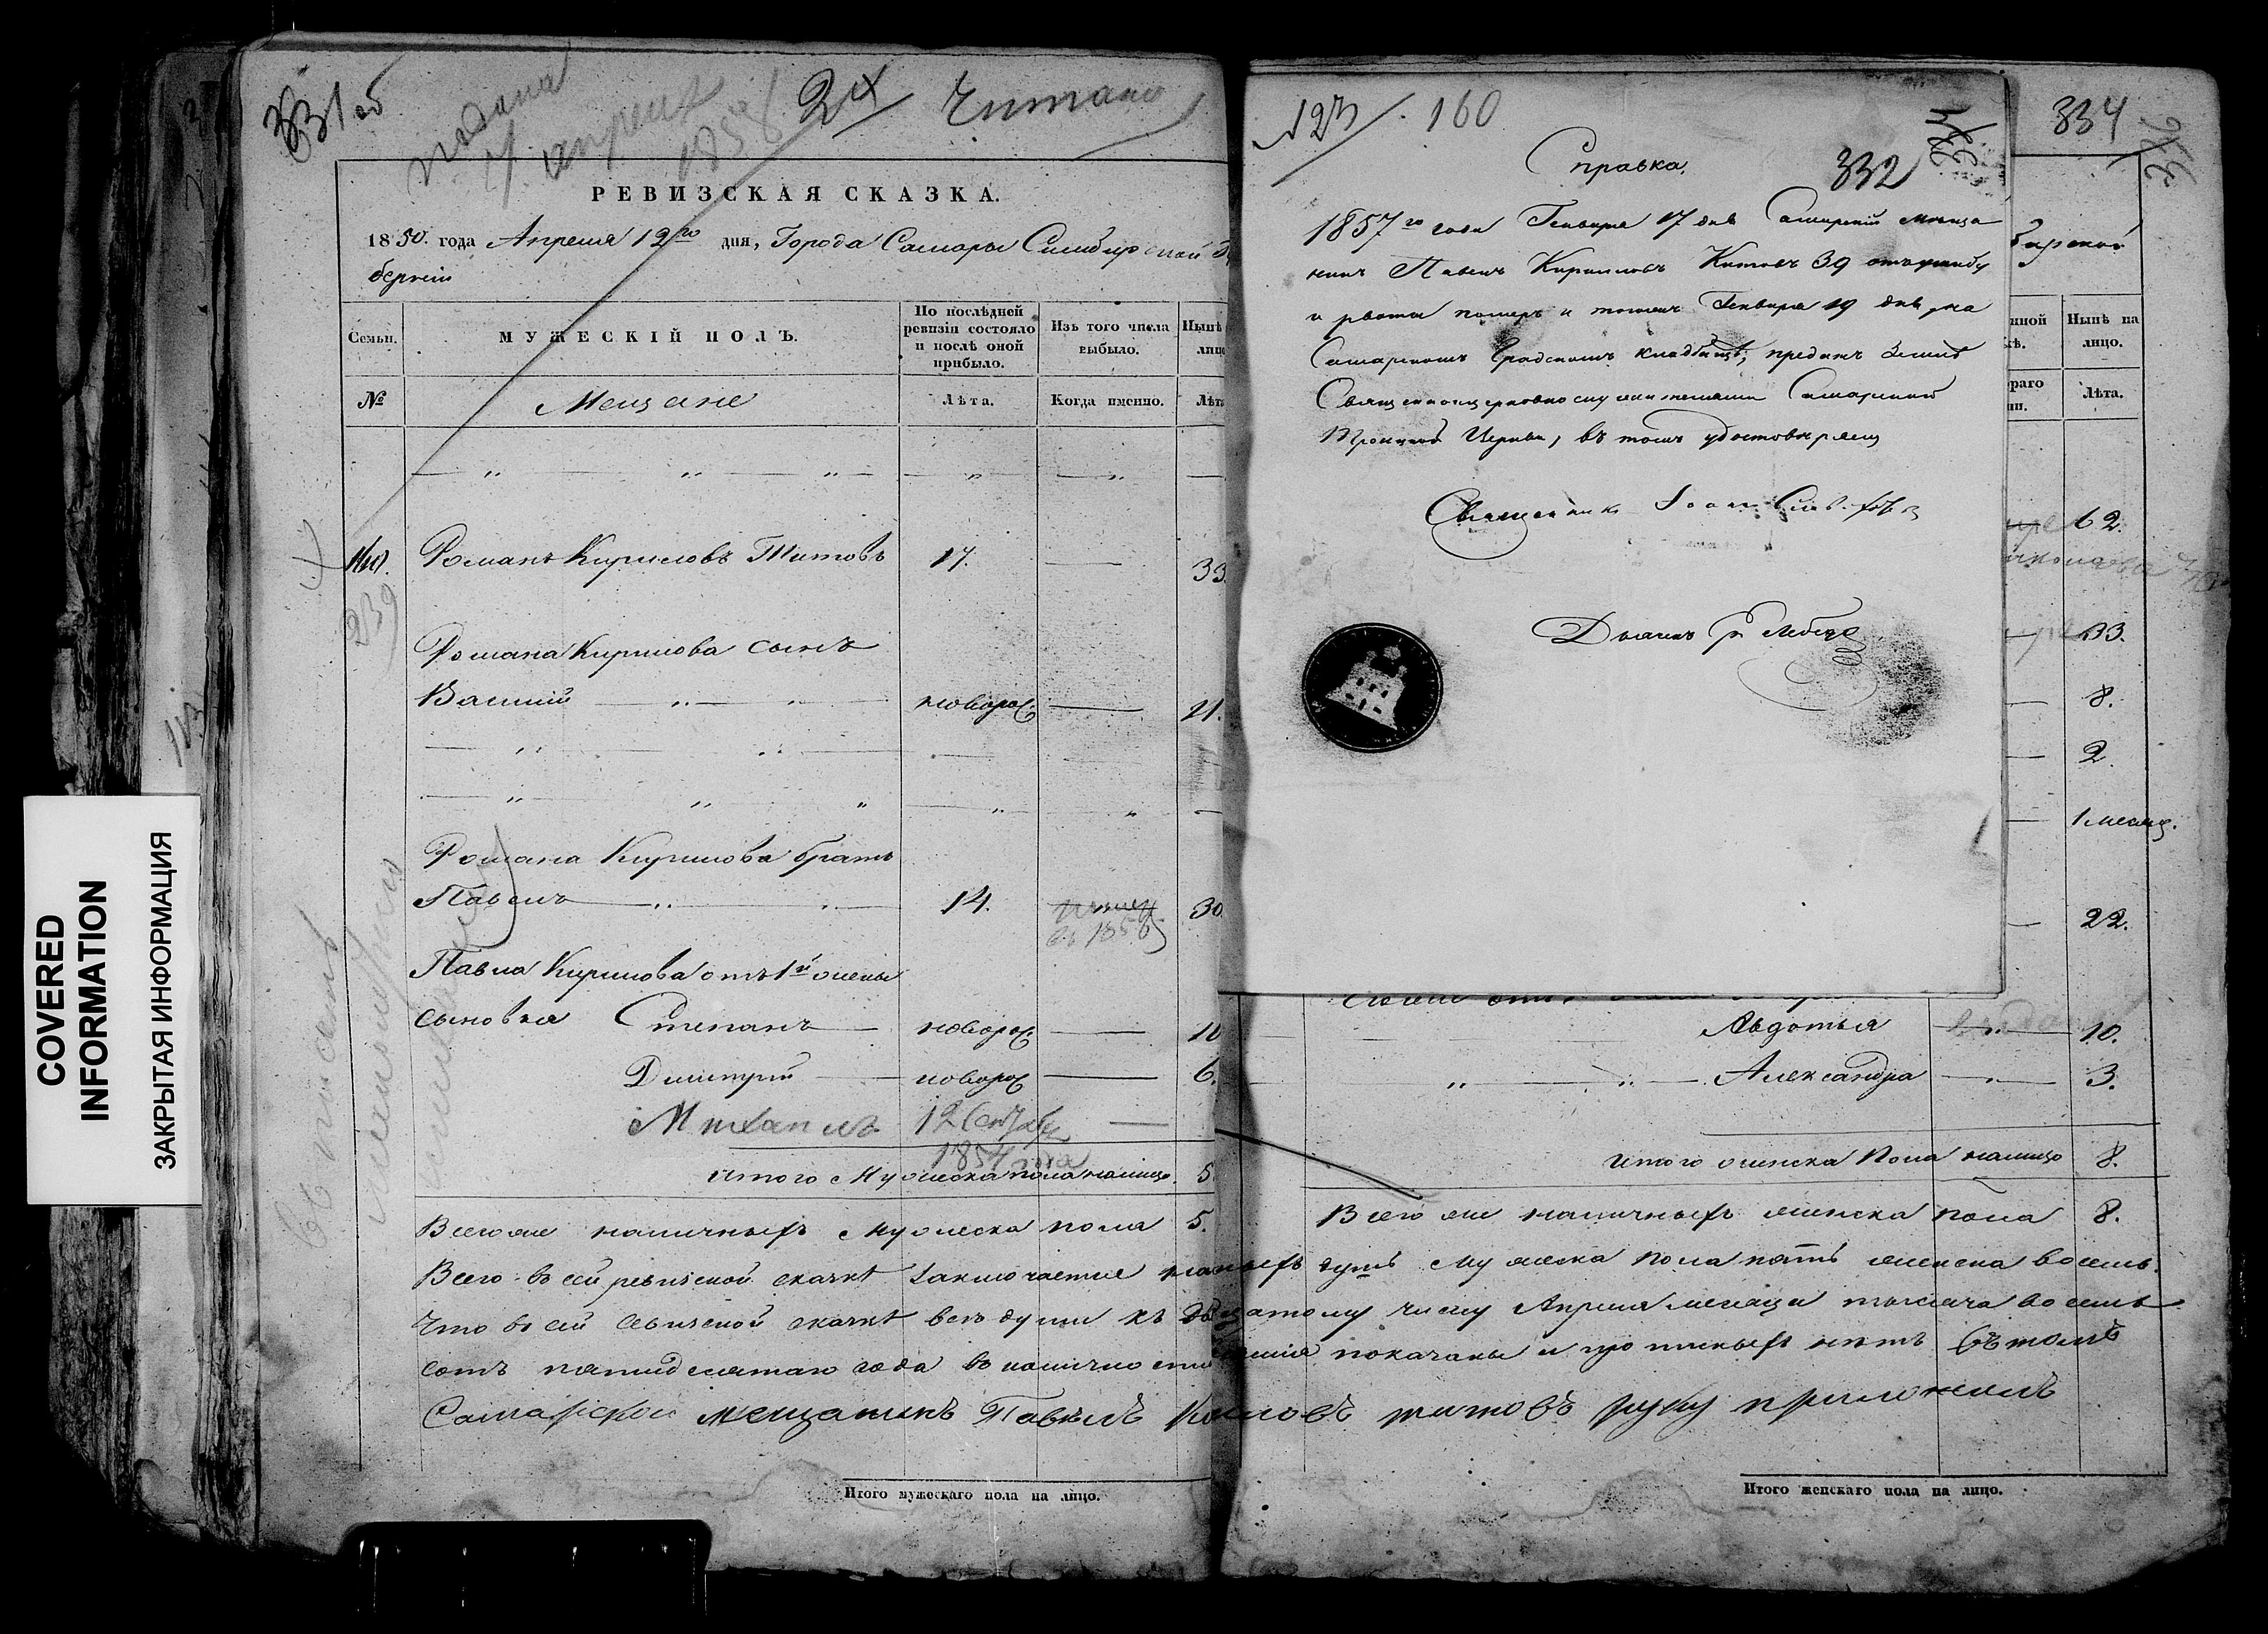 331 об
подана
4 апреля
1858
24 Читано
РЕВИЗСКАЯ СКАЗКА.
1850. года Апреля 12го дня, Города Самары Симбирской Гу
бернiи
Семьи.
МУЖЕСКІЙ ПОЛЪ.
По послѣдней
ревизіи состояло
и послѣ оной
прибыло.
Изъ того числа
выбыло.
Нынѣ
лицо
№
Мещане
Лѣта.
Когда именно.
Лѣта
Романъ Кириловъ Титовъ 17. 33.
239
Романа Кирилова сынъ
Василiй новорож 21.
Романа Кирилова братъ
Павелъ 14. 30.
Павла Кирилова отъ 1й жены
сыновья Степанъ новорож 10
Дмитрiй новорож 6.
Михаилъ 12
1854 года
Итого Мужеска пола налицо 5
Всего же наличныхъ Мужеска пола 5.
Всего въ сей ревизской сказкѣ заключается
Что въ сей ревизской сказкѣ всѣ души къ
сотъ пятидесятаго года въ наличности
Самарской мещанинъ Павелъ
123 / 160
Справка.
332
1857го года Генваря 17 дня Самарскiй меща
нинъ Павелъ Кириловъ Титовъ 39
и рвоты помре и тогожъ Генваря 19 дня, на
Самарскомъ Градскомъ кладбищѣ, преданъ земле
Священноцерковнослужителями Самарской
Троицкой Церкви, въ томъ удостовѣряемъ
Священникъ Iоаннъ
334
бирской
нной
кѣ.
Нынѣ на
лицо.
раго
ни.
Лѣта.
62.
33.
8.
2.
1 месяц.
22.
Авдотья 10.
Александра 3.
Итого женска Пола налицо 8.
Всего же наличныхъ женска пола 8.
душъ Мужеска пола пять женска восемь.
числу Апреля месяца тысяча восемь
показаны и прописныхъ нетъ въ томъ
титовъ руку приложилъ
Итого мужескаго пола на лицо.
Итого женскаго пола на лицо.
COVERED
INFORMATION
ЗАКРЫТАЯ ИНФОРМАЦИЯ